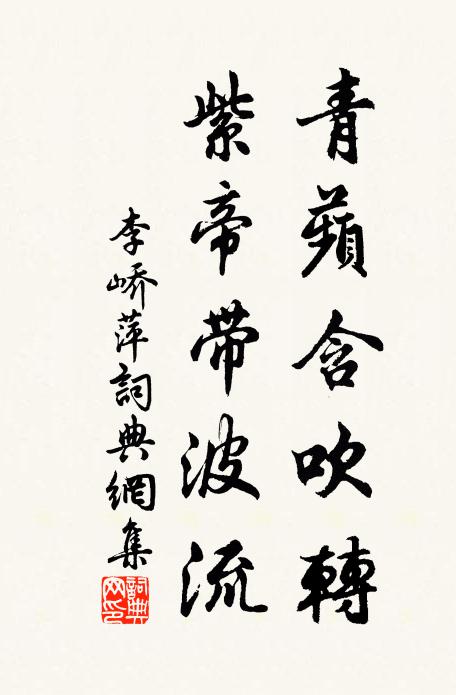 青蘋含吹轉
紫帝帶波流
李嶠萍詞典網集
詞典網印